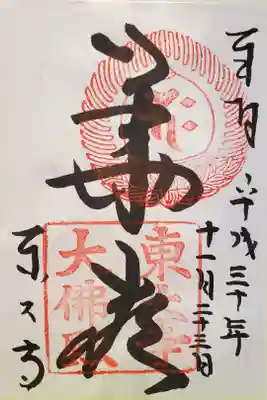 奉拝 平成三十年
十一月二十三日
華厳
東大寺
東大寺
大佛殿